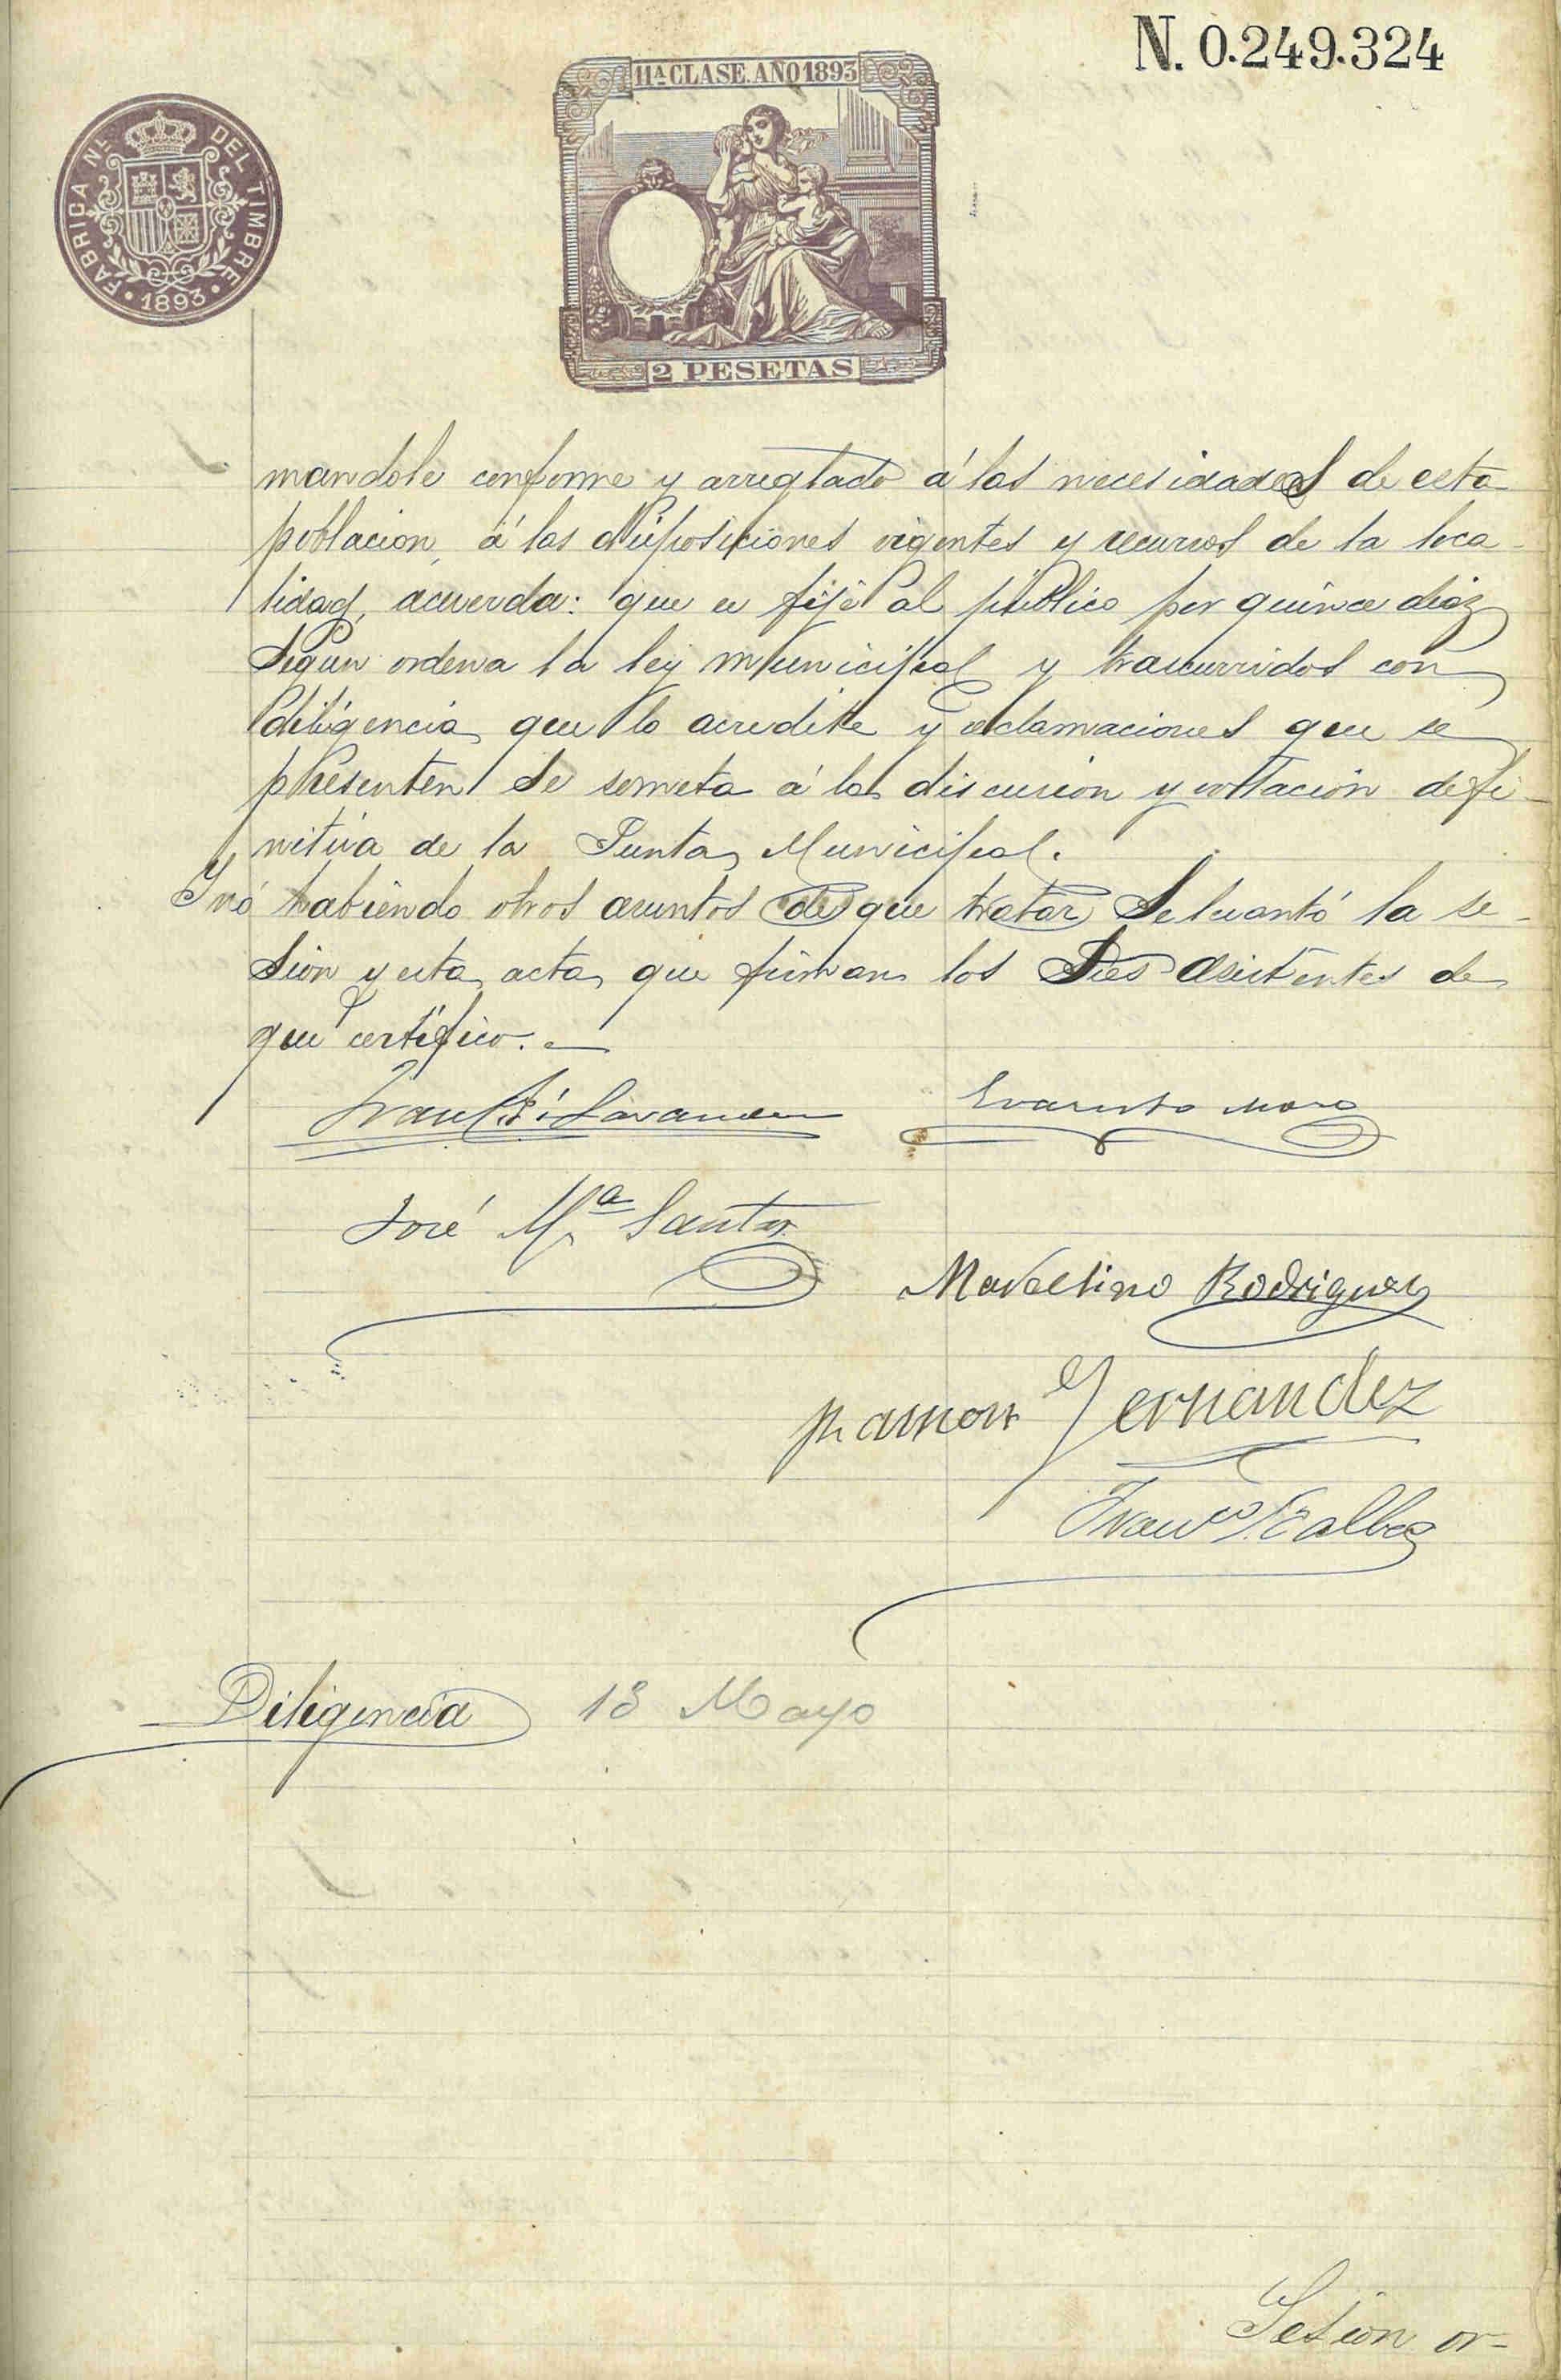 N. 0.249.324
11ª CLASE. AÑO 1893
FABRICA NL. DEL TIMBRE
1893
2 PESETAS
mandole conforme y arreglado á las necesidades de esta
poblacion, á las disposiciones vigentes y recursos de la loca-
lidad, acuerda: que se fije al público por quince dias
segun ordena la ley municipal y trascurridos con
diligencia que lo acredite y reclamaciones que se
presenten se someta á la discusion y votacion defi-
nitiva de la Junta Municipal.
Y nó habiendo otros asuntos de que tratar se levantó la se-
sion y esta acta que firman los Sres asistentes de
que certifico.
Evaristo Mora
José Mª Santos
Marcelino Rodriguez
Ramon Fernandez
Franco
Diligencia 13 Mayo
Sesion or-